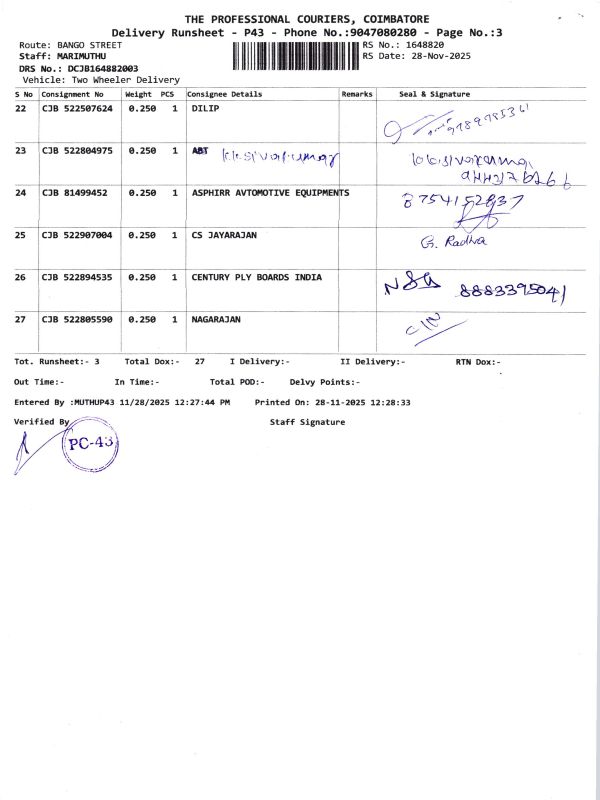 THE PROFESSIONAL COURIERS, COIMBATORE
Delivery Runsheet - P43 - Phone No.:9047080280 - Page No.:3
Route: BANGO STREET
RS No.: 1648820
Staff: MARIMUTHU
RS Date: 28-Nov-2025
DRS No.: DCJB164882003
Vehicle: Two Wheeler Delivery
S No Consignment No Weight PCS Consignee Details Remarks Seal & Signature
22 CJB 522507624 0.250 1 DILIP
23 CJB 522804975 0.250 1 ABT
24 CJB 81499452 0.250 1 ASPHIRR AVTOMOTIVE EQUIPMENTS
25 CJB 522907004 0.250 1 CS JAYARAJAN G. Radha
26 CJB 522894535 0.250 1 CENTURY PLY BOARDS INDIA 8883395041
27 CJB 522805590 0.250 1 NAGARAJAN
Tot. Runsheet:- 3 Total Dox:- 27 I Delivery:- II Delivery:- RTN Dox:-
Out Time:- In Time:- Total POD:- Delvy Points:-
Entered By :MUTHUP43 11/28/2025 12:27:44 PM Printed On: 28-11-2025 12:28:33
Verified By Staff Signature
PC-43